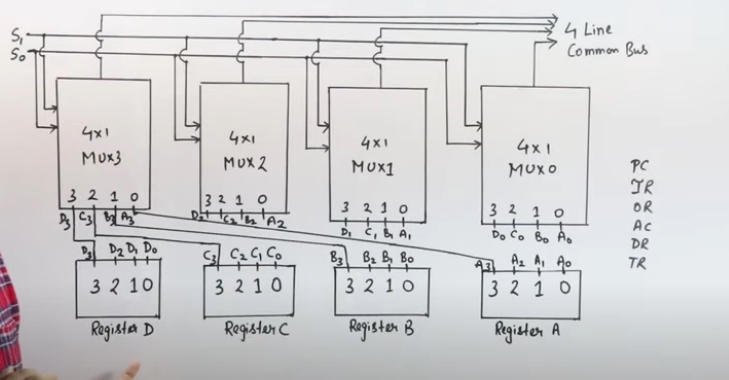 S₁
S₀
4 Line
Common Bus
4x1
MUX3
3 2 1 0
D₃ C₃ B₃ A₃
4x1
MUX2
3 2 1 0
D₂ C₂ B₂ A₂
4x1
MUX1
3 2 1 0
D₁ C₁ B₁ A₁
4x1
MUX0
3 2 1 0
D₀ C₀ B₀ A₀
PC
IR
OR
AC
DR
TR
D₃ D₂ D₁ D₀
3 2 1 0
Register D
C₃ C₂ C₁ C₀
3 2 1 0
Register C
B₃ B₂ B₁ B₀
3 2 1 0
Register B
A₃ A₂ A₁ A₀
3 2 1 0
Register A